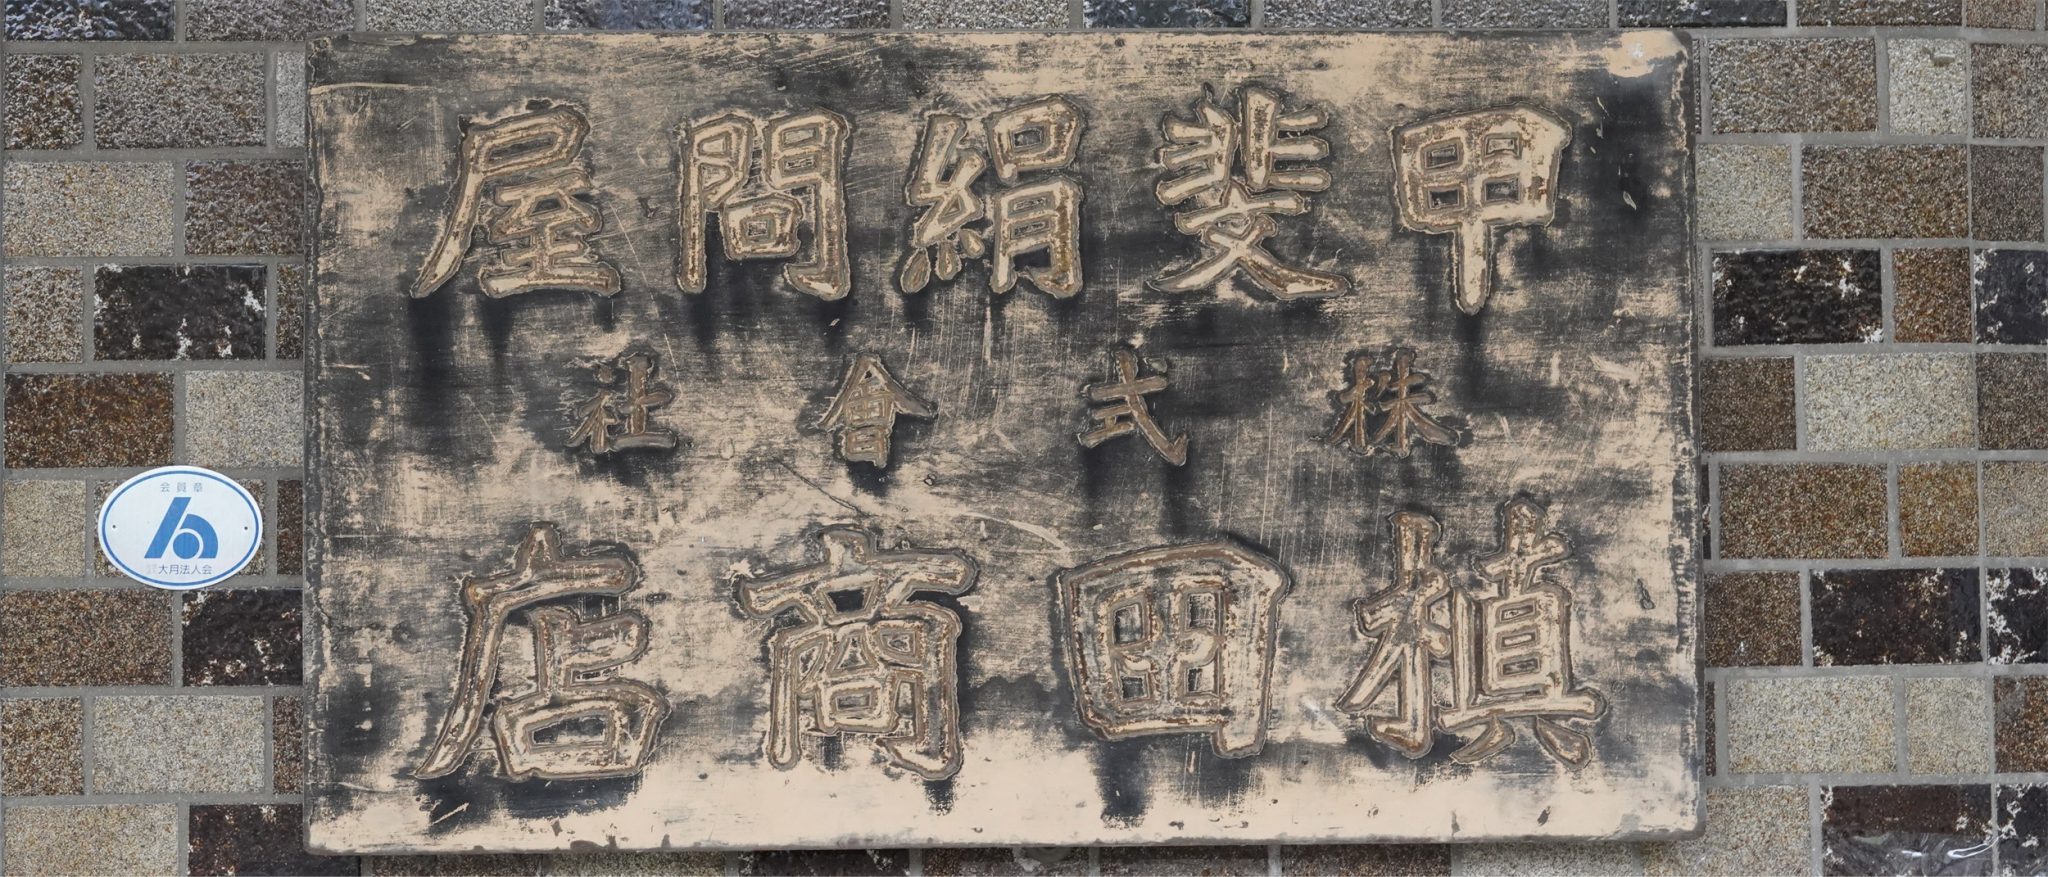 甲斐絹問屋
株式會社
槙田商店
会員章
大月法人会